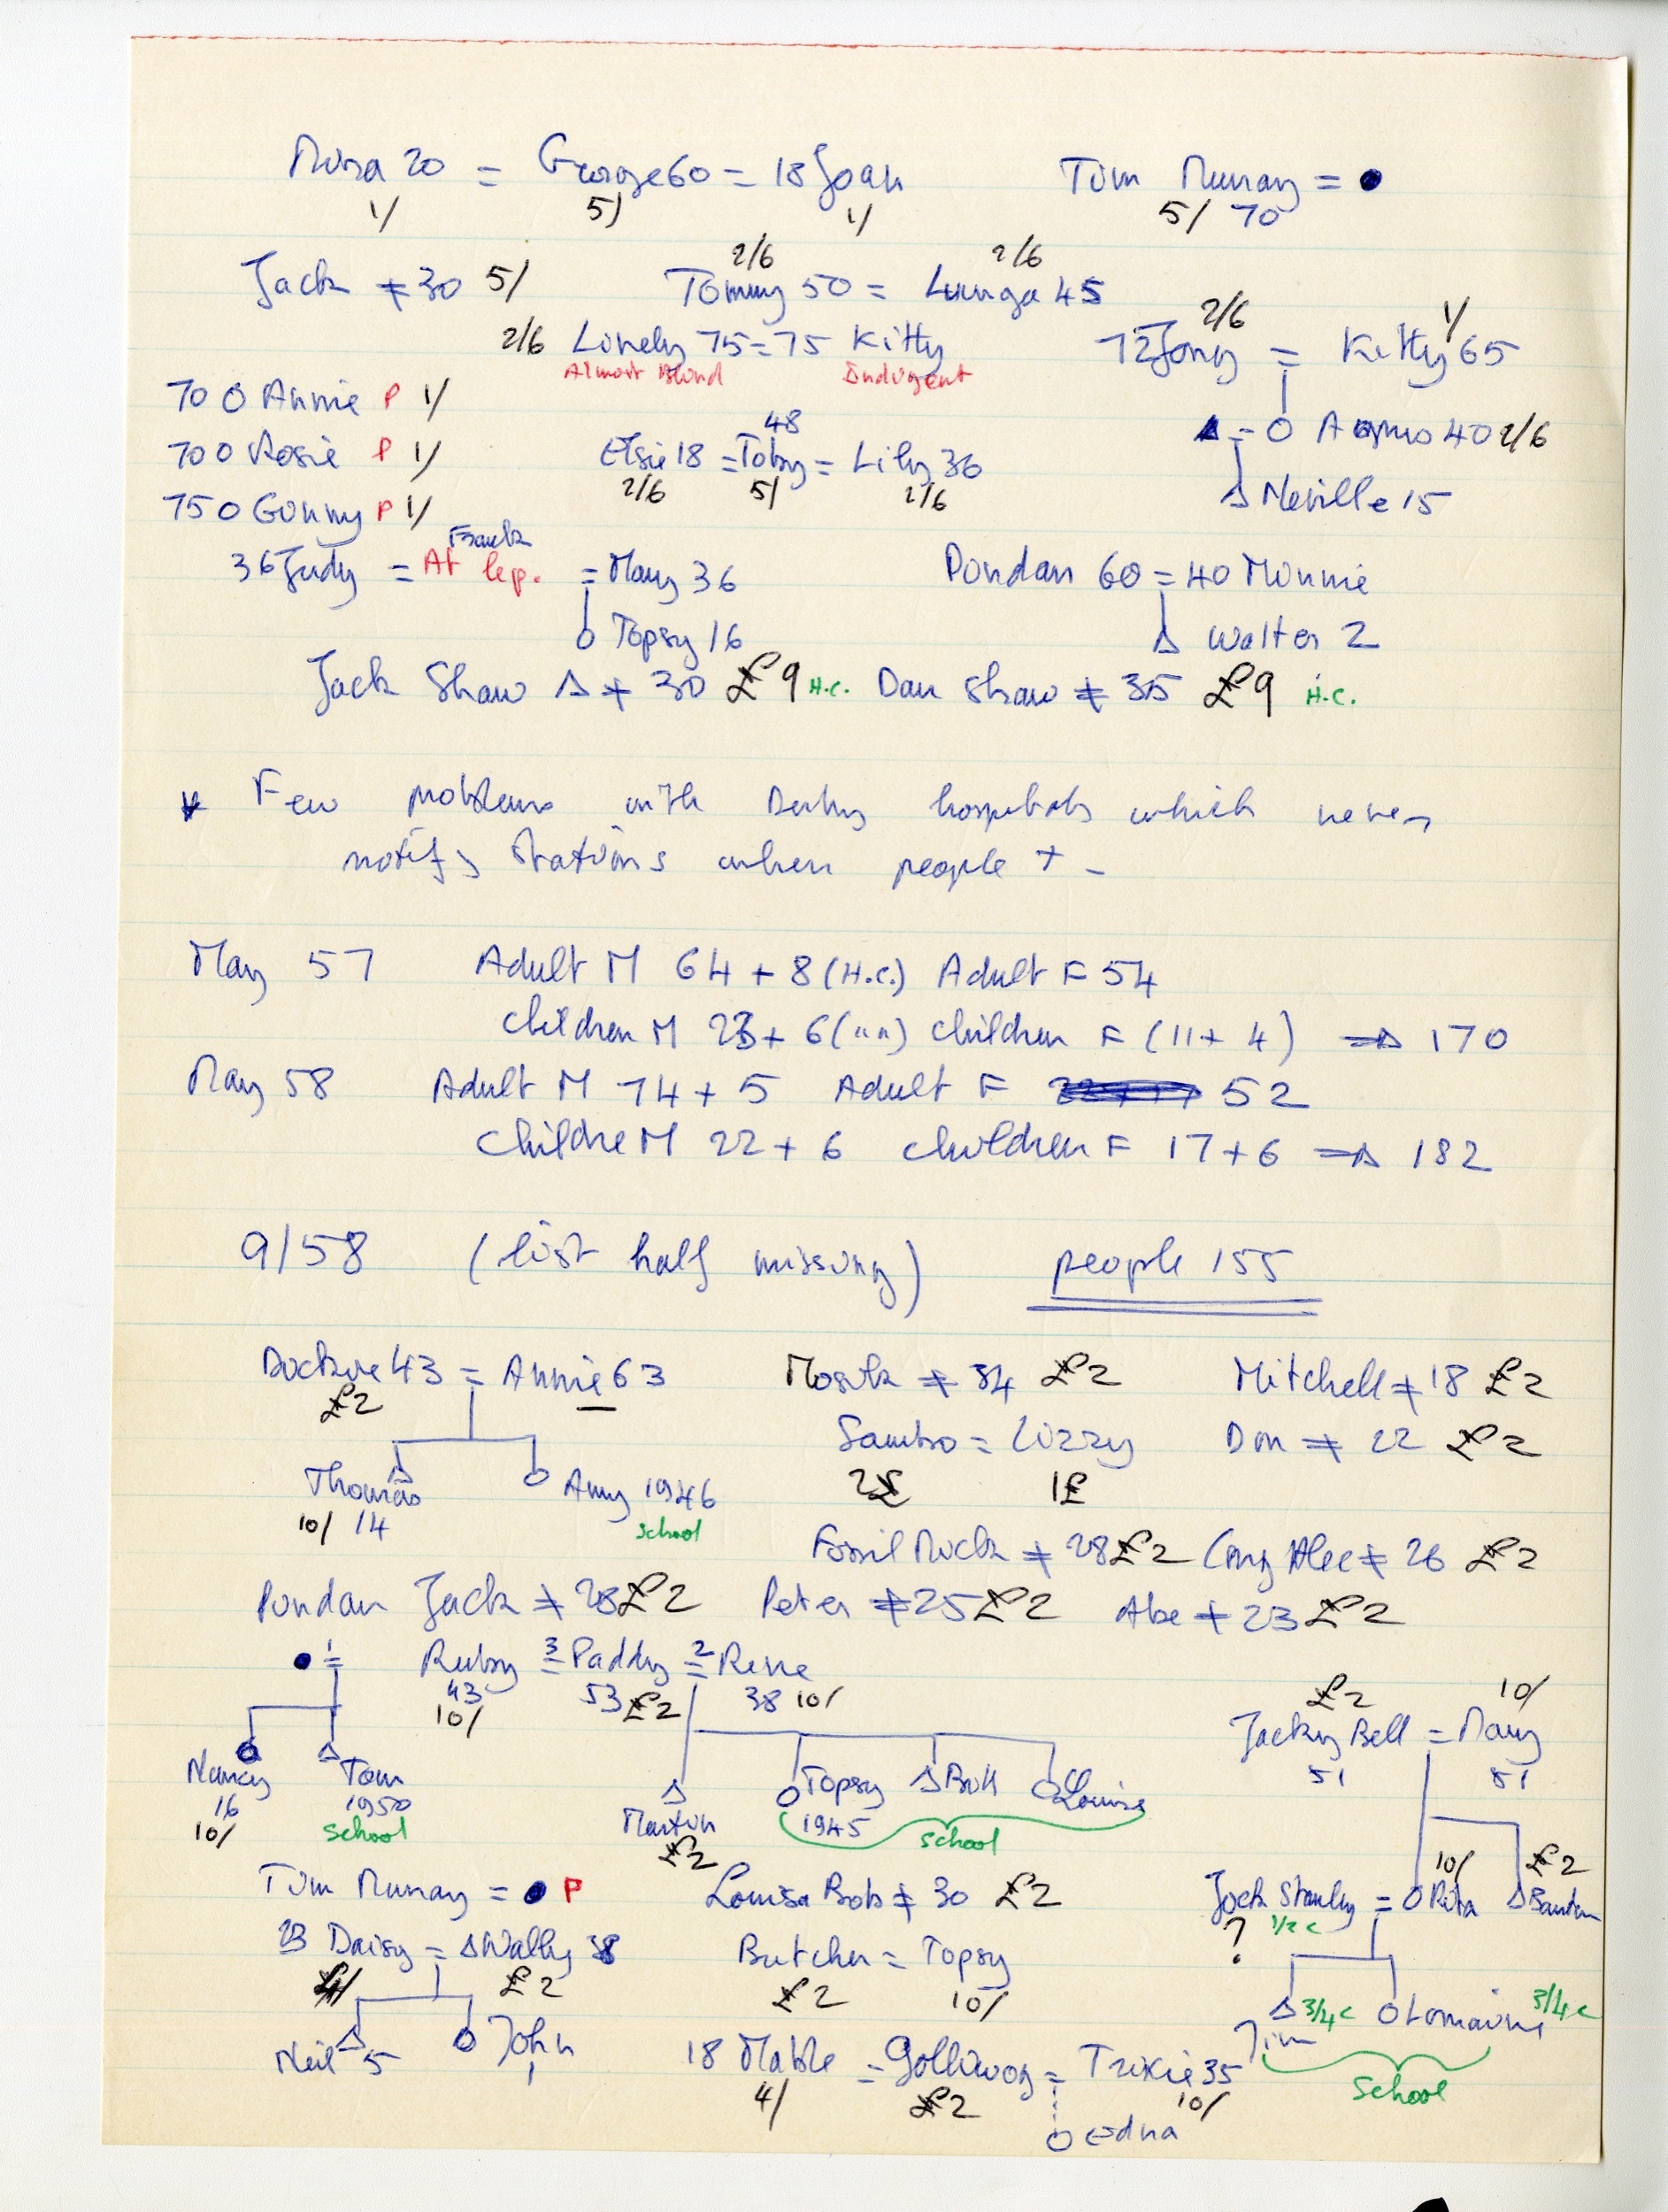 Mina 20 = George 60 = 18 Joan Tim Murray = ●
1/ 5/ 1/ 5/ 70
2/6 2/6
Jack ≠ 30 5/ Tommy 50 = Lunga 45
2/6 1/
2/6 Lively 75 = 75 Kitty 72 Jony = Kitty 65
Almost Blind Indigent
70 O Annie P 1/
48
▲ = O Agnes 40 2/6
70 O Rosie P 1/ Elsie 18 = Toby = Lily 36
2/6 5/ 2/6
Δ Neville 15
75 O Ginny P 1/
Frank
36 Judy = At lep. = Mary 36 Pundan 60 = 40 Minnie
O Topsy 16 Δ Walter 2
Jack Shaw Δ ≠ 30 £9 H.C. Dan Shaw ≠ 35 £9 H.C.
* Few problems with Derby hospitals which never
notify stations when people + -
May 57 Adult M 64 + 8 (H.C.) Adult F 54
Children M 23 + 6 (" ") Children F (11 + 4) ⇒ 170
May 58 Adult M 74 + 5 Adult F 52
Childre M 22 + 6 Children F 17 + 6 ⇒ 182
9/58 (list half missing) people 155
43 = Annie 63 ≠ 34 £2 Mitchell ≠ 18 £2
£2
Sambo = Lizzy Don ≠ 22 £2
2£ 1£
Thomas Δ O Amy 1946
10/ 14 school
Fossil Rock ≠ 28 £2 Long Alec ≠ 26 £2
Pundan Jack ≠ 28 £2 Peter ≠ 25 £2 Abe ≠ 23 £2
● 1= Ruby 3= Paddy 2= Rene
43 53 £2 38 10/
10/
£2 10/
Jacky Bell = Mary
51 51
Nancy Tom Martin Topsy Δ Bill Louise
16 1950 1945
10/ school £2 school
10/ £2
Tim Murray = ● P Louisa Bob ≠ 30 £2 Jack Stanley = O Rita Δ
? 1/2 c
23 Daisy = Δ Wally 38 Butcher = Topsy
£2 £2 10/
Δ 3/4 c O Lorraine 3/4 c
Jim
Neil Δ 5 O John 1
school
18 Mable = Golliwog = Trixie 35
4/ £2 10/
O Edna